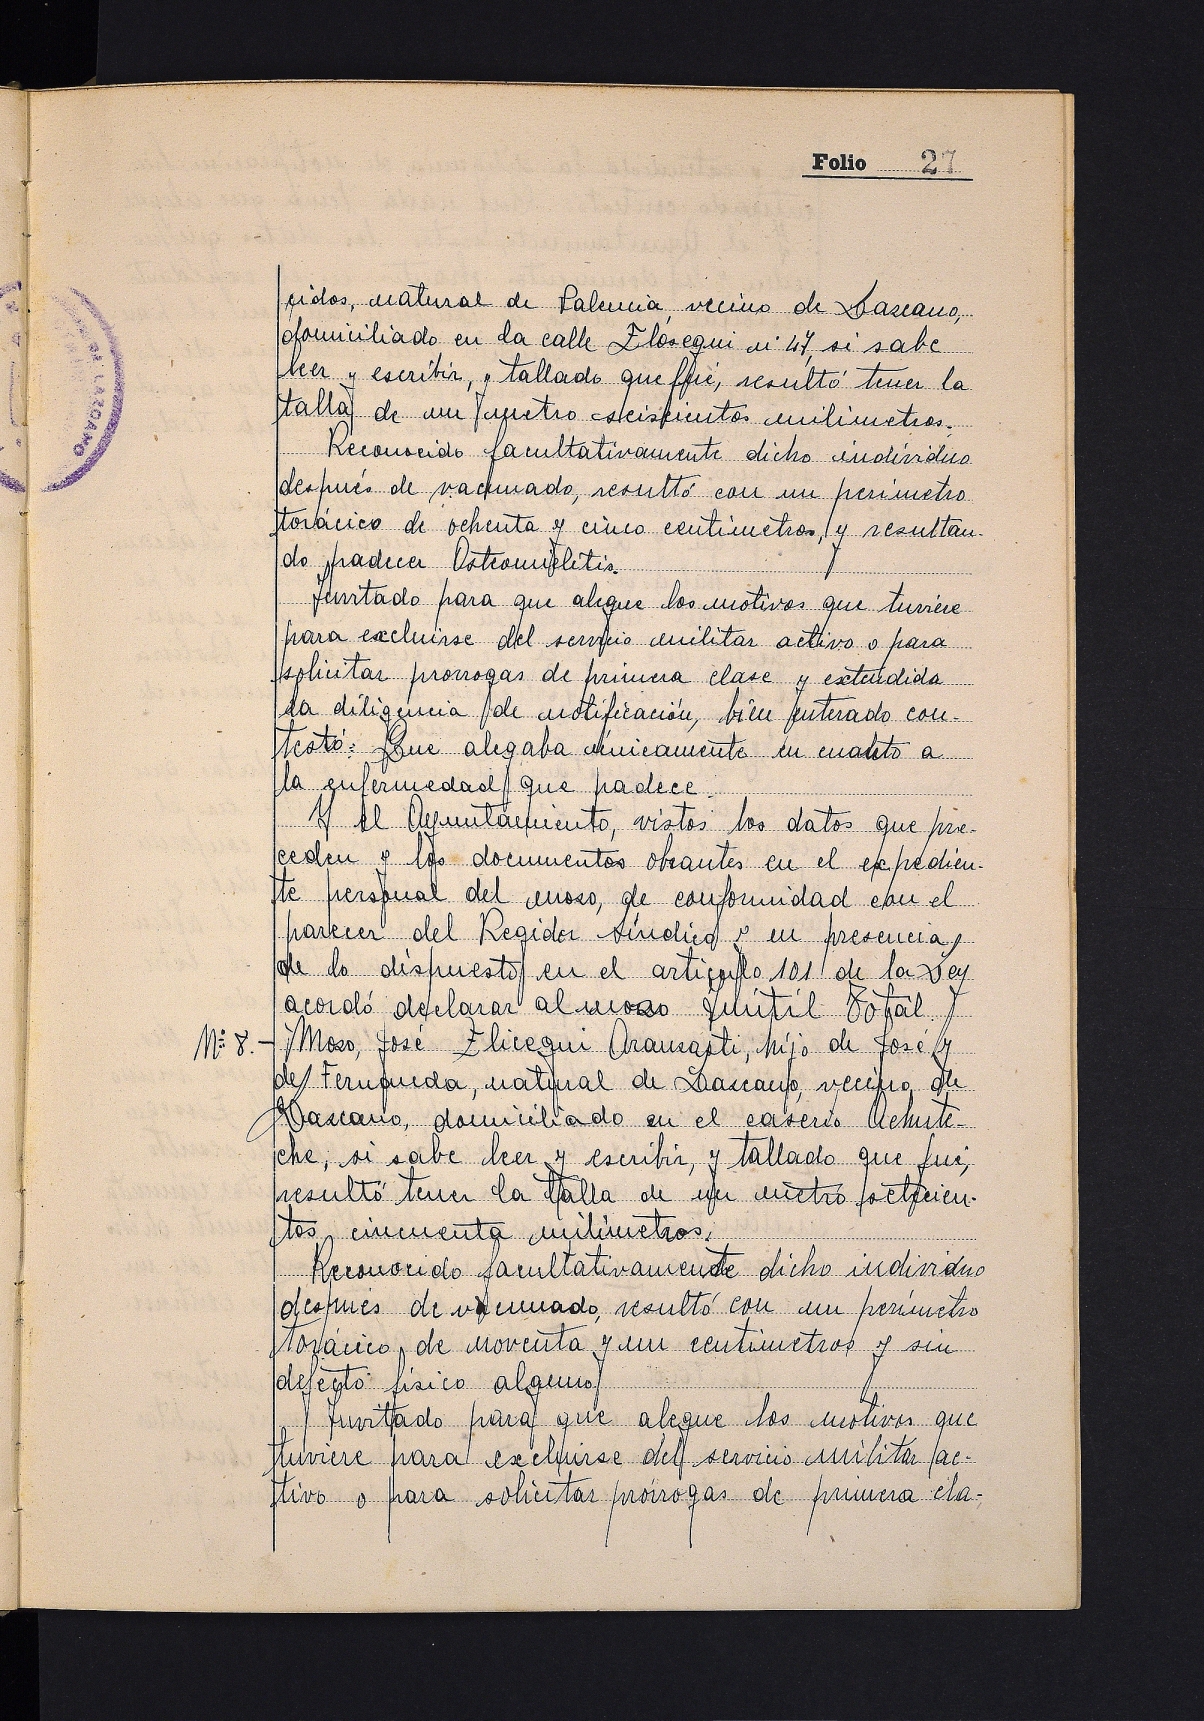 Folio 27
cidos, natural de Palencia, vecino de Lazcano,
domiciliado en la calle Elósegui nº 47, si sabe
leer y escribir, y tallado que fué, resultó tener la
talla de un metro seiscientos milimetros.
Reconocido facultativamente dicho individuo
después de vacunado, resultó con un perímetro
torácico de ochenta y cinco centimetros, y resultan-
do padecer Osteomielitis.
Invitado para que alegue los motivos que tuviere
para excluirse del servicio militar activo o para
solicitar prorrogas de primera clase y extendida
la diligencia de notificación, bien enterado con-
testó: Que alegaba únicamente en cuanto a
la enfermedad que padece.
Y el Ayuntamiento, vistos los datos que pre-
ceden y los documentos obrantes en el expedien-
te personal del mozo, de conformidad con el
parecer del Regidor Síndico y en presencia
de lo dispuesto en el artículo 101 de la Ley
acordó declarar al mozo Inútil Total.
Nº 8.- Mozo, José Elicegui Aransasti, hijo de José y
de Fernanda, natural de Lazcano, vecino de
Lazcano, domiciliado en el caserio Achurte-
che, si sabe leer y escribir, y tallado que fué,
resultó tener la talla de un metro setecien-
tos cincuenta milimetros.
Reconocido facultativamente dicho individuo
después de vacunado, resultó con un perímetro
torácico de noventa y un centimetros y sin
defecto físico alguno
Invitado para que alegue los motivos que
tuviere para excluirse del servicio militar ac-
tivo o para solicitar prórrogas de primera cla-
DE LAZCANO